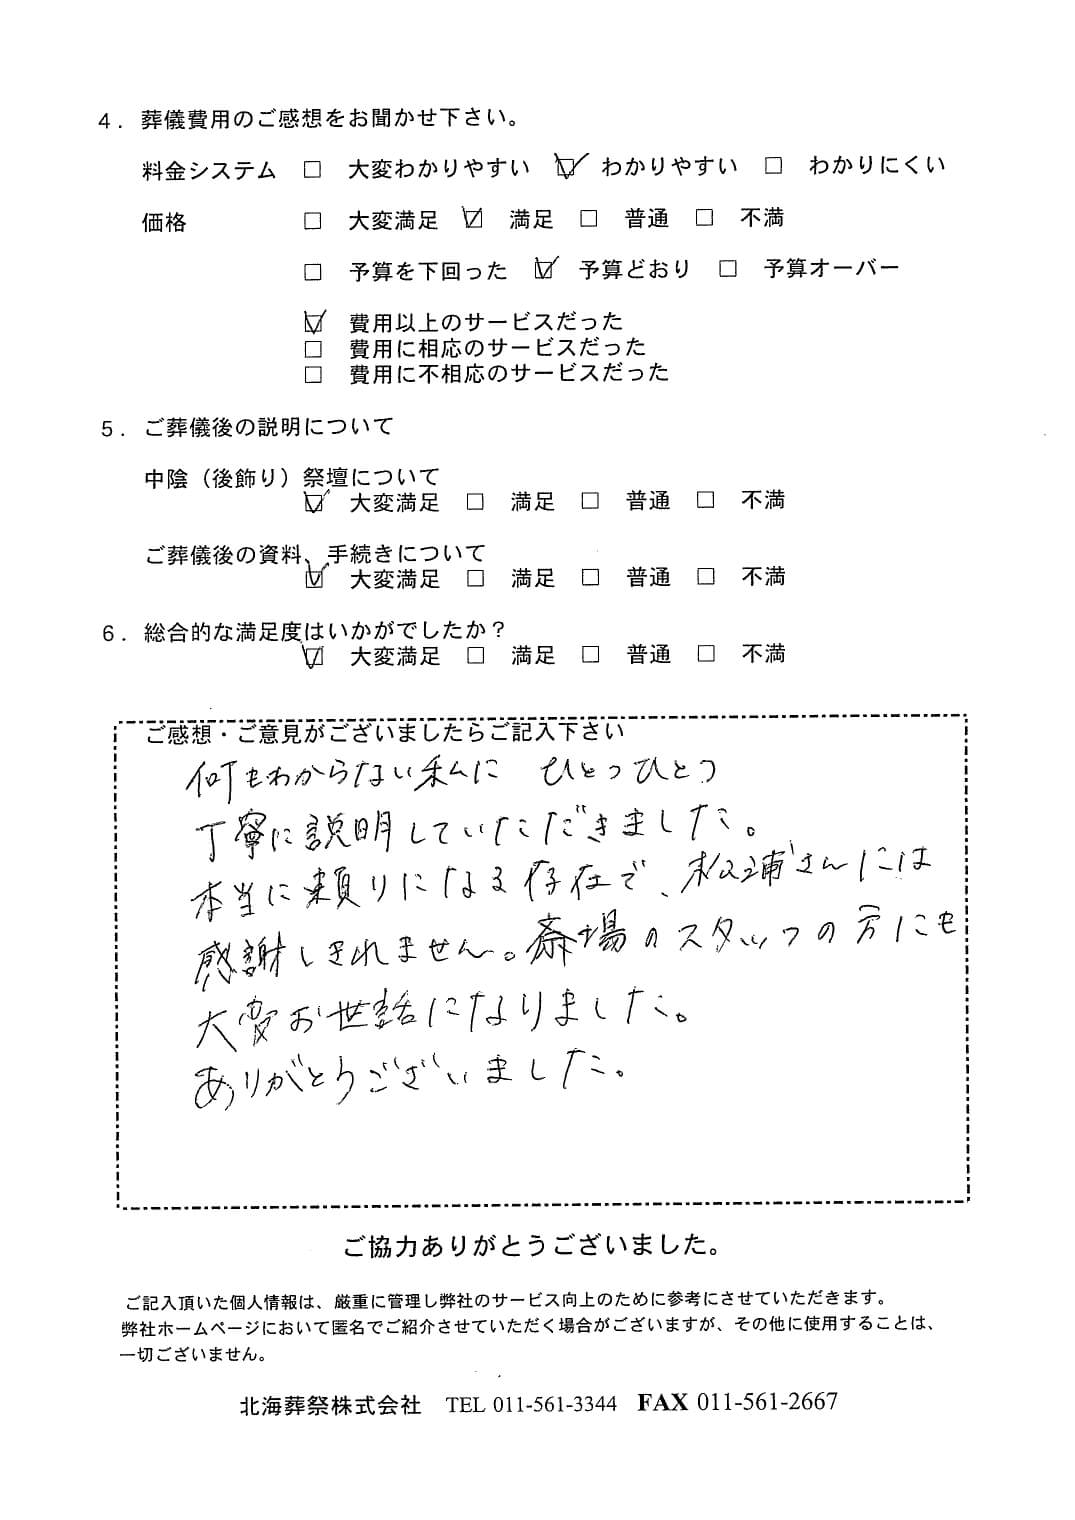 4．葬儀費用のご感想をお聞かせ下さい。
料金システム □ 大変わかりやすい ☑ わかりやすい □ わかりにくい
価格 □ 大変満足 ☑ 満足 □ 普通 □ 不満
□ 予算を下回った ☑ 予算どおり □ 予算オーバー
☑ 費用以上のサービスだった
□ 費用に相応のサービスだった
□ 費用に不相応のサービスだった
5．ご葬儀後の説明について
中陰（後飾り）祭壇について
☑ 大変満足 □ 満足 □ 普通 □ 不満
ご葬儀後の資料、手続きについて
☑ 大変満足 □ 満足 □ 普通 □ 不満
6．総合的な満足度はいかがでしたか？
☑ 大変満足 □ 満足 □ 普通 □ 不満
ご感想・ご意見がございましたらご記入下さい
何もわからない私に ひとつひとつ
丁寧に説明していただきました。
本当に頼りになる存在で、松浦さんには
感謝しきれません。斎場のスタッフの方にも
大変お世話になりました。
ありがとうございました。
ご協力ありがとうございました。
ご記入頂いた個人情報は、厳重に管理し弊社のサービス向上のために参考にさせていただきます。
弊社ホームページにおいて匿名でご紹介させていただく場合がございますが、その他に使用することは、
一切ございません。
北海葬祭株式会社 TEL 011-561-3344 FAX 011-561-2667